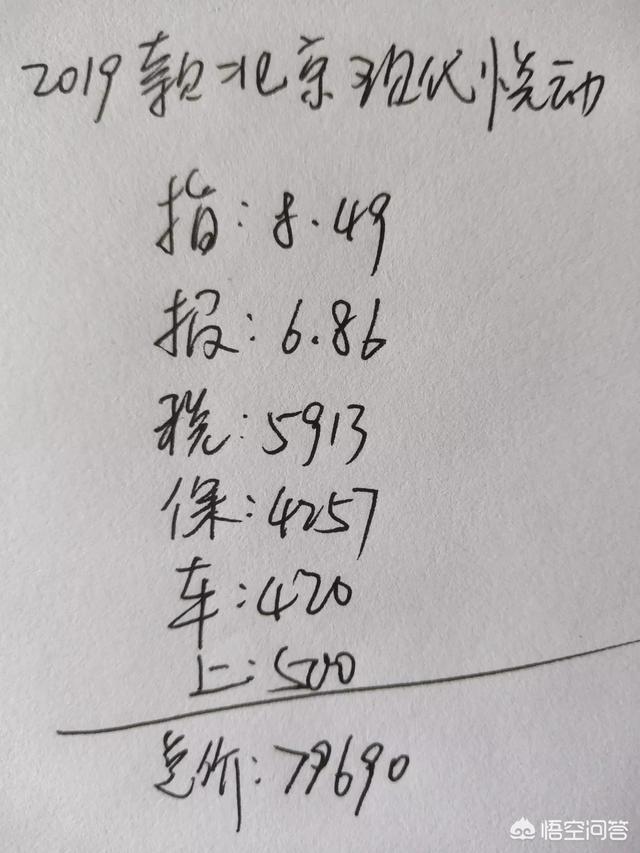 2019款北京现代悦动
指:8.49
报:6.86
税:5913
保:4257
车:420
上:500
总价:79690
悟空问答